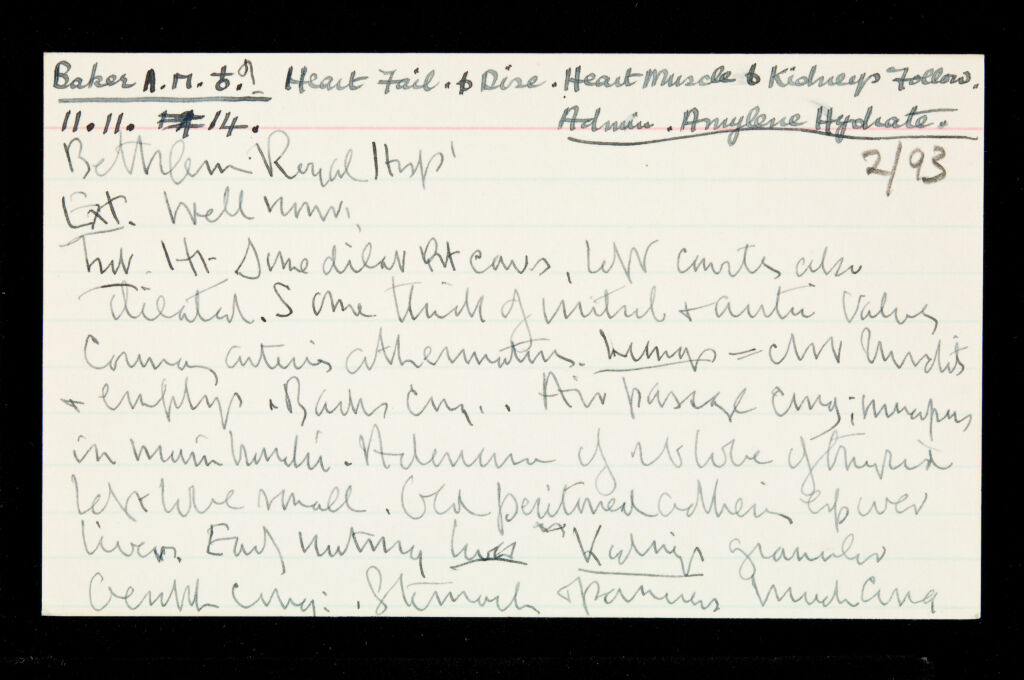 Baker A.M. Heart Fail. & Dise. Heart Muscle & Kidneys Follow.
11.11. 14. Admin. Amylene Hydrate.
Bethlem Royal Hosp' 2/93
Ext. Well nour.
Int. Ht Some dilat Rt cavs, left cavities also
dilated. Some thick of mitral + aortic valves
Coronary arteries atheromatous. Lungs = chr
+ emphys. Bases cong.. Air passage cong; mucopus
in main bronchi. Adenoma of rt lobe of thyroid
left lobe small. Old peritoneal adhesins esp over
liver. Early nutmeg liver Kidneys granular
cong: . Stomach + pancreas much cong